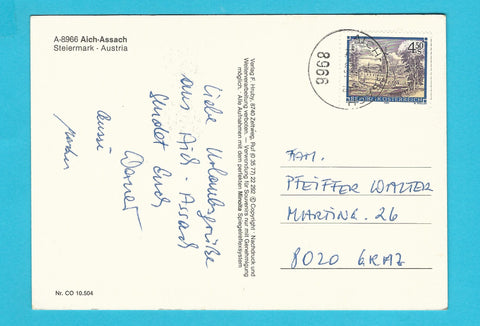 A-8966 Aich-Assach
Steiermark - Austria
Liebe Urlaubsgrüße
aus Aich-Assach
sendet Euch
Werner
Bussi
Verlag F. Hruby, 8740 Zeltweg, Ruf (0 35 77) 22 292 © Copyright - Nachdruck und
Weiterverarbeitung verboten. — Verwendung für Souvenirs nur mit Genehmigung
möglich - Alle Aufnahmen mit dem perfekten Minolta Spiegelreflexsystem
AICH
8966
4.50
REPUBLIK ÖSTERREICH
FAM.
PFEIFFER WALTER
MARTING. 26
8020 GRAZ
Nr. CO 10.504